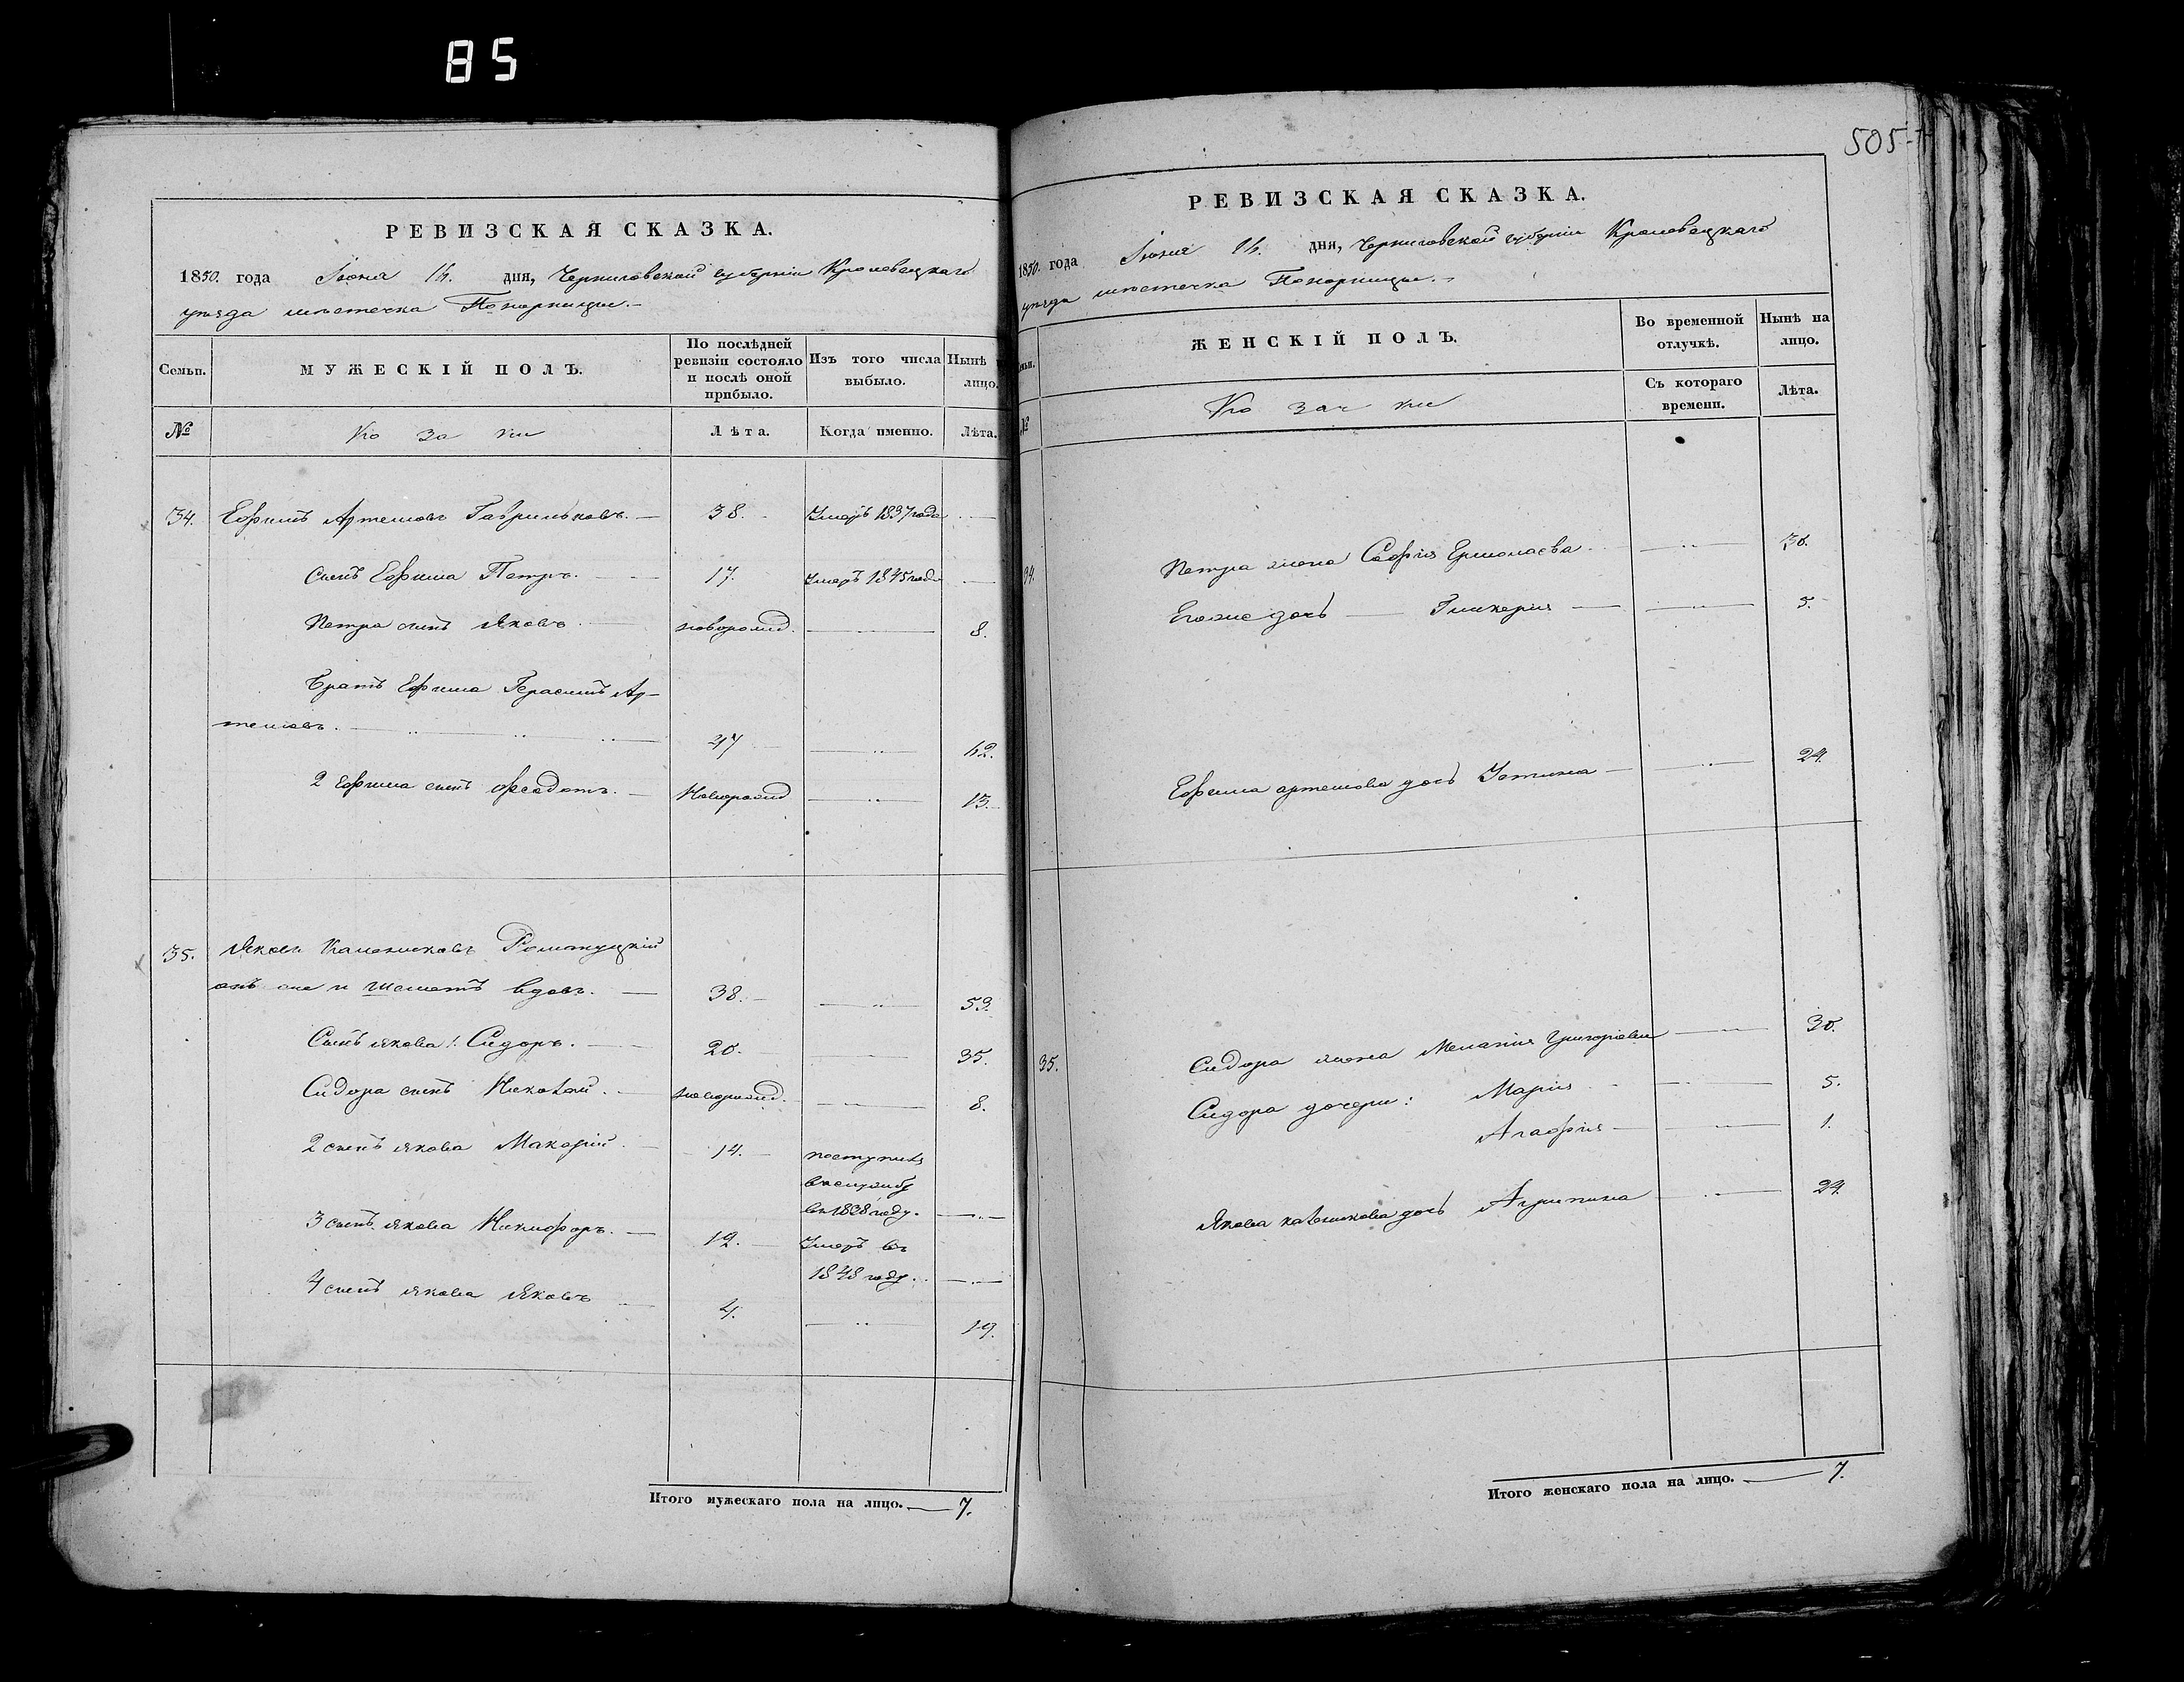 85
РЕВИЗСКАЯ СКАЗКА.
1850. года Іюня 14. дня, Черниговской губерніи Кролевецкаго
уѣзда мѣстечка Понорницы.
Семьи. МУЖЕСКІЙ ПОЛЪ. По послѣдней ревизіи состояло и послѣ оной прибыло. Изъ того числа выбыло. Нынѣ лицо.
№ Козаки Лѣта. Когда именно. Лѣта.
34. Ефимъ Артемовъ Гаврильковъ. 38. Умеръ 1837 года
Сынъ Ефима Петръ. 17. Умеръ 1845 года
Петра сынъ Яковъ. новорожд. 8.
Братъ Ефима Герасимъ Ар-
темовъ. 27 42.
2 Ефима сынъ Феодотъ. Новорожд 13.
35. Яковъ Калениковъ
онъ же и Шеметъ вдовъ. 38. 53.
Сынъ Якова 1. Сидоръ. 20. 35.
Сидора сынъ Николай. новорожд. 8.
2 сынъ Якова Макарій. 14. поступилъ
въ службу
въ 1838 году.
3 сынъ Якова Никифоръ. 12. Умеръ въ
1848 году.
4 сынъ Якова Яковъ 4. 19.
Итого мужескаго пола на лицо. 7.
505
РЕВИЗСКАЯ СКАЗКА.
1850. года Іюня 14. дня, Черниговской губерніи Кролевецкаго
уѣзда мѣстечка Понорницы.
ЖЕНСКІЙ ПОЛЪ. Во временной отлучкѣ. Нынѣ на лицо.
№ Козачки Съ котораго времени. Лѣта.
34. Петра жена Софія Ермолаева 30.
Егоже дочь Гликерія 5.
Ефима Артемова дочь Устина 24.
35. Сидора жена Меланія Григоріева 30.
Сидора дочери: Марія 5.
Агафія 1.
Якова Каленикова дочь Агрипина 24.
Итого женскаго пола на лицо. 7.